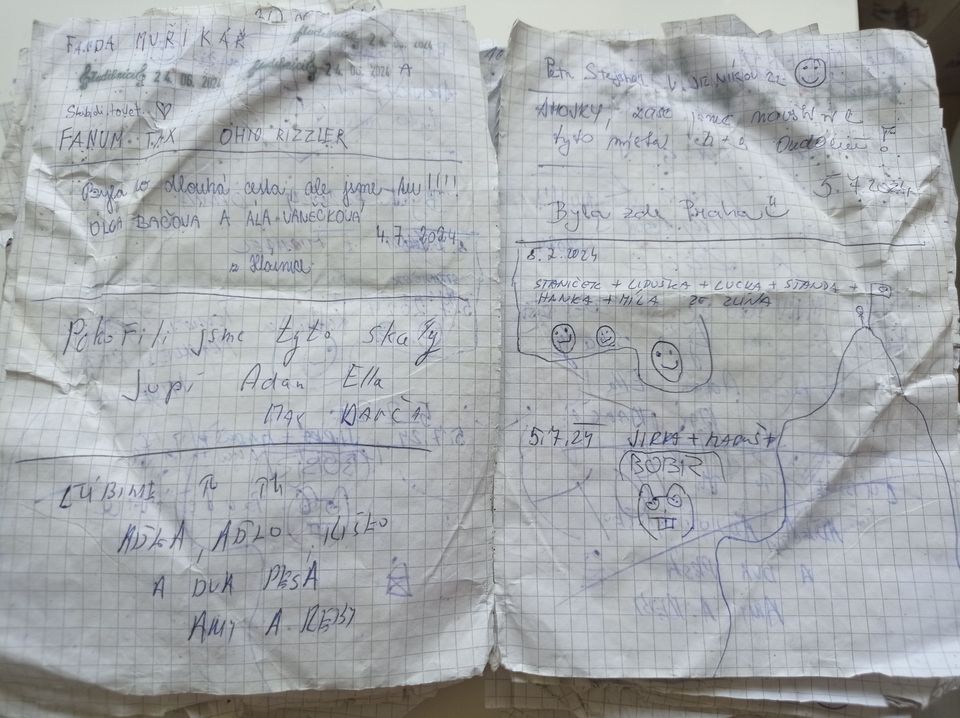 FANDA MUŘIKÁŘ
24. 06. 2024
24. 06. 2024 24. 06. 2024 A
FANUM TAX OHIO RIZZLER
Byla to dlouhá cesta, ale jsme tu!!!!
OLGA BAČOVA A ALA VANĚČKOVÁ
4.7. 2024
z Hlavnice
Pokořili jsme tyto skály
Jupí Adam Ella
MAX DANČA
ĽÚBIME
AĎKA, AĎKO,
A DVA PESÁ
AMY A REBY
Petr
AHOJKY, zase jsme navštívili
tyto místa
5.7.2024
Byla zde Praha
5.7.2024
STANIČEK + LIDUŠKA + LUCKA + STANDA +
HANKA + MÍLA ZE ZLÍNA
5.7.24 JIRKA +
BOBR